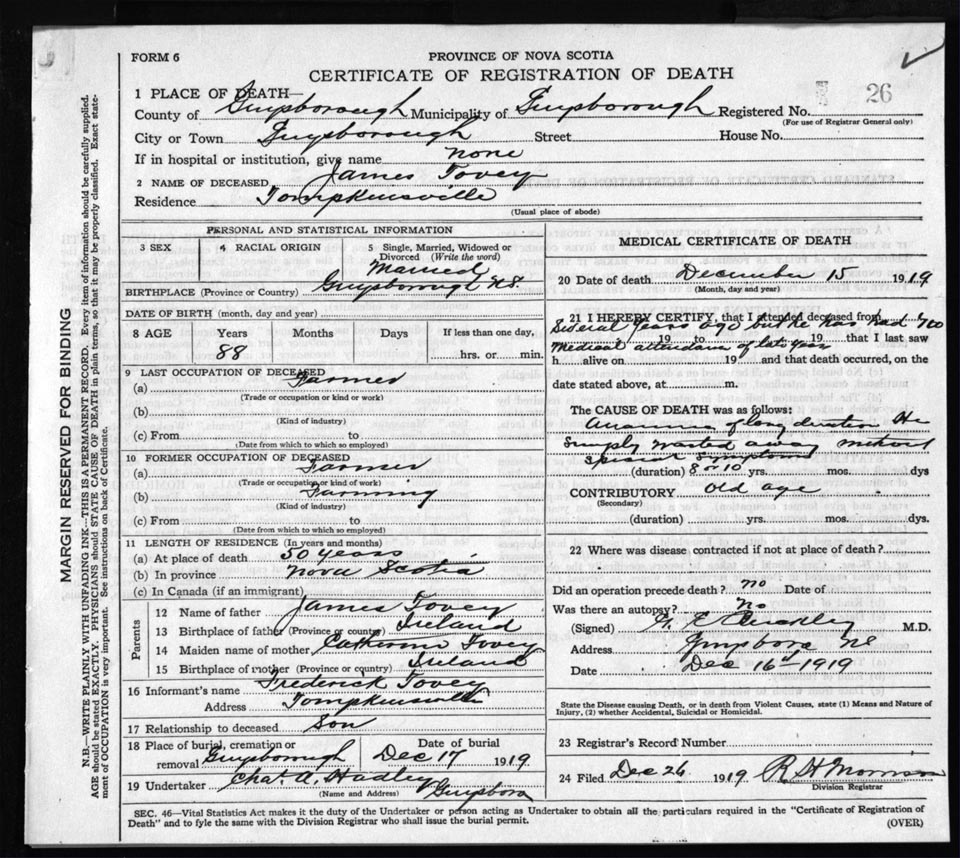 FORM 6
PROVINCE OF NOVA SCOTIA
CERTIFICATE OF REGISTRATION OF DEATH
26
1 PLACE OF DEATH—
County of Guysborough Municipality of Guysborough Registered No.
(For use of Registrar General only)
City or Town Guysborough Street House No.
If in hospital or institution, give name none
2 NAME OF DECEASED James Tovey
Residence Tompkinsville
(Usual place of abode)
PERSONAL AND STATISTICAL INFORMATION
3 SEX 4 RACIAL ORIGIN 5 Single, Married, Widowed or Divorced (Write the word)
Married
BIRTHPLACE (Province or Country) Guysborough N.S.
DATE OF BIRTH (month, day and year)
8 AGE Years Months Days If less than one day,
88 hrs. or min.
9 LAST OCCUPATION OF DECEASED
(a) Farmer
(Trade or occupation or kind or work)
(b)
(Kind of industry)
(c) From to
(Date from which to which so employed)
10 FORMER OCCUPATION OF DECEASED
(a) Farmer
(Trade or occupation or kind of work)
(b) Farming
(Kind of industry)
(c) From to
(Date from which to which so employed)
11 LENGTH OF RESIDENCE (In years and months)
(a) At place of death 50 years
(b) In province Nova Scotia
(c) In Canada (if an immigrant)
Parents
12 Name of father James Tovey
13 Birthplace of father (Province or country) Ireland
14 Maiden name of mother Catherine Tovey
15 Birthplace of mother (Province or country) Ireland
16 Informant's name Frederick Tovey
Address Tompkinsville
17 Relationship to deceased Son
18 Place of burial, cremation or removal Guysborough Date of burial Dec 17 1919
19 Undertaker Chas. A. Hadley
(Name and Address) Guysboro
MEDICAL CERTIFICATE OF DEATH
20 Date of death December 15 1919
(Month, day and year)
21 I HEREBY CERTIFY, that I attended deceased from
Several years ago but he has had no
19 to 19 that I last saw
medical attendance of late years
h alive on 19 and that death occurred, on the
date stated above, at m.
The CAUSE OF DEATH was as follows:
Anaemia of long duration He
simply wasted away without
special symptoms
(duration) 8 or 10 yrs. mos. dys
CONTRIBUTORY old age
(Secondary)
(duration) yrs. mos. dys.
22 Where was disease contracted if not at place of death?
Did an operation precede death? no Date of
Was there an autopsy? no
(Signed) G. E. Buckley M.D.
Address Guysboro NS
Date Dec 16th 1919
State the Disease causing Death, or in death from Violent Causes, state (1) Means and Nature of
Injury, (2) whether Accidental, Suicidal or Homicidal.
23 Registrar's Record Number
24 Filed Dec 26 1919 R H Morrison
Division Registrar
SEC. 46—Vital Statistics Act makes it the duty of the Undertaker or person acting as Undertaker to obtain all the particulars required in the "Certificate of Registration of
Death" and to fyle the same with the Division Registrar who shall issue the burial permit.
(OVER)
MARGIN RESERVED FOR BINDING
N.B.—WRITE PLAINLY WITH UNFADING INK—THIS IS A PERMANENT RECORD. Every item of information should be carefully supplied.
AGE should be stated EXACTLY. PHYSICIANS should STATE CAUSE OF DEATH in plain terms, so that it may be properly classified. Exact state-
ment of OCCUPATION is very important. See instructions on back of Certificate.